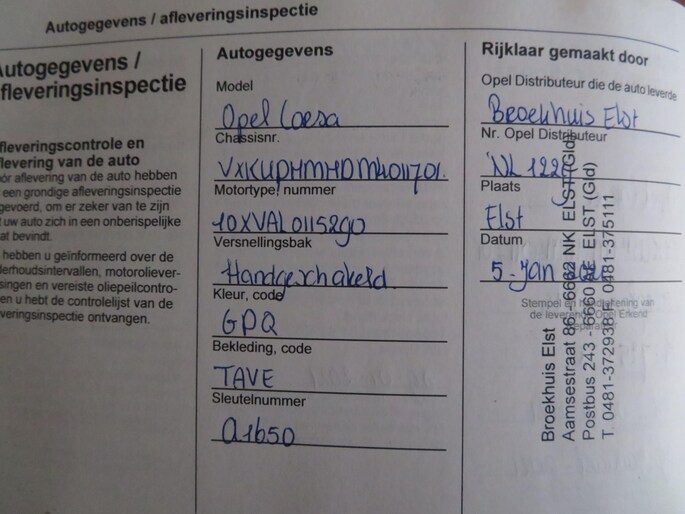 Autogegevens / afleveringsinspectie
Autogegevens /
fleveringsinspectie
fleveringscontrole en
flevering van de auto
ór aflevering van de auto hebben
een grondige afleveringsinspectie
gevoerd, om er zeker van te zijn
uw auto zich in een onberispelijke
at bevindt.
hebben u geïnformeerd over de
derhoudsintervallen, motoroliever-
singen en vereiste oliepeilcontro-
en u hebt de controlelijst van de
veringsinspectie ontvangen.
Autogegevens
Model
Opel Corsa
Chassisnr.
VXKUPHMHDM4011701
Motortype, nummer
10XVAL0115290
Versnellingsbak
Handgeschakeld
Kleur, code
GPQ
Bekleding, code
TAVE
Sleutelnummer
A1650
Rijklaar gemaakt door
Opel Distributeur die de auto leverde
Broekhuis Elst
Nr. Opel Distributeur
NL 122
Plaats
Elst
Datum
5-Jan
Stempel en handtekening van
de leverende Opel Erkend
Reparateur
Broekhuis Elst
Aamsestraat 86 - 6662 NK ELST (Gld)
Postbus 243 - 6660 AE ELST (Gld)
T. 0481-372938 F. 0481-375111